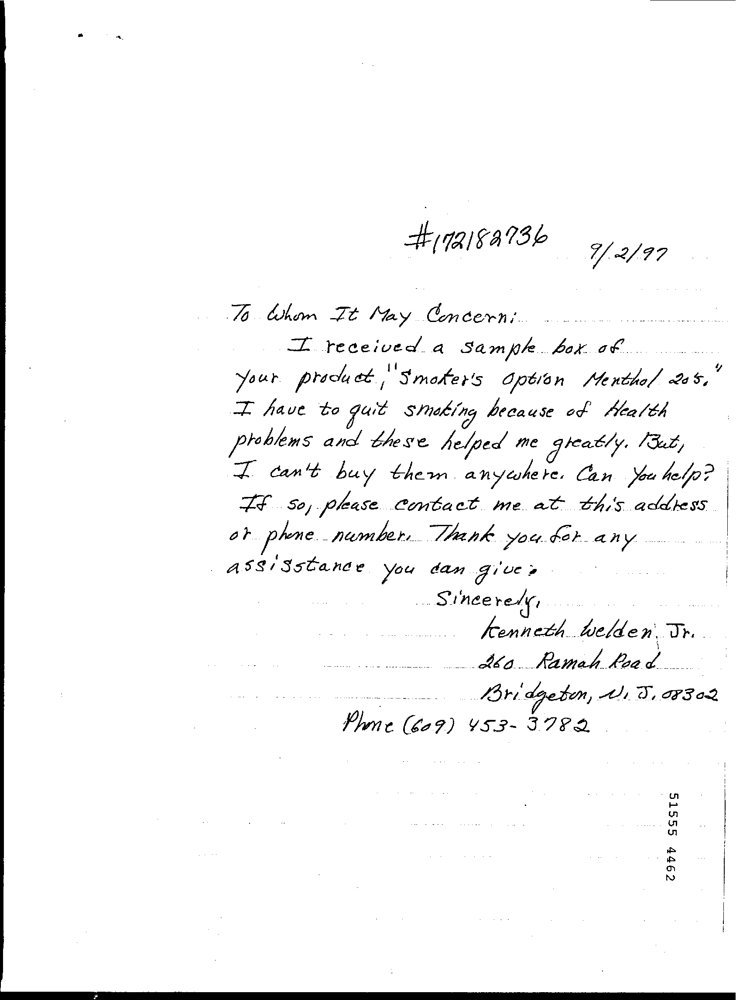 #172182736
9/2/97
To Whom It May Concern:
I received a sample box of
your product, "Smoker's Option Menthol 20's."
I have to quit smoking because of Health
problems and these helped me greatly. But,
I can't buy them anywhere. Can You help?
If so, please contact me at this address
or phone number. Thank you for any
assisstance you can give.
Sincerely,
Kenneth Welden Jr.
260 Ramah Road
Bridgeton, N.J. 08302
Phone (609) 453-3782
51555 4462